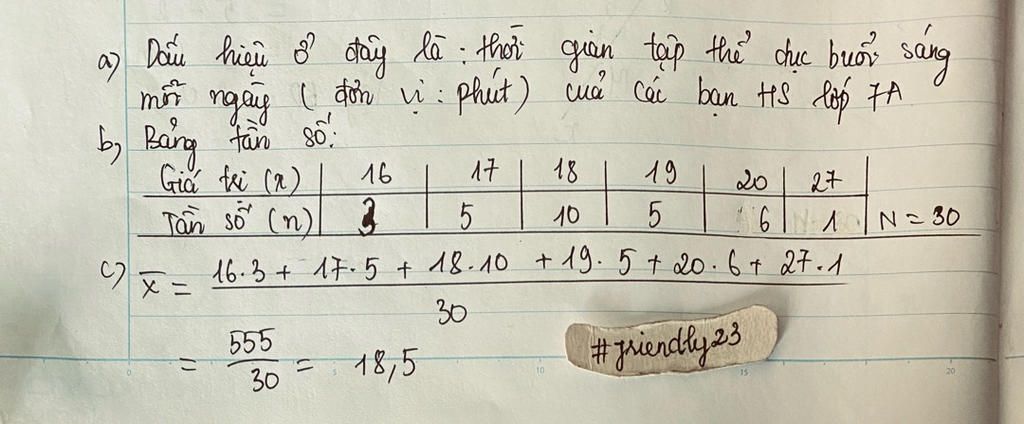 a) Dấu hiệu ở đây là : thời gian tập thể dục buổi sáng
mỗi ngày ( đơn vị : phút ) của các bạn HS lớp 7A
b, Bảng tần số:
Giá trị (x) | 16 | 17 | 18 | 19 | 20 | 27 |
Tần số (n) | 3 | 5 | 10 | 5 | 6 | 1 | N = 30
c) x̅ = 16.3 + 17.5 + 18.10 + 19.5 + 20.6 + 27.1
30
= 555/30 = 18,5
#friendly23
0 5 10 15 20